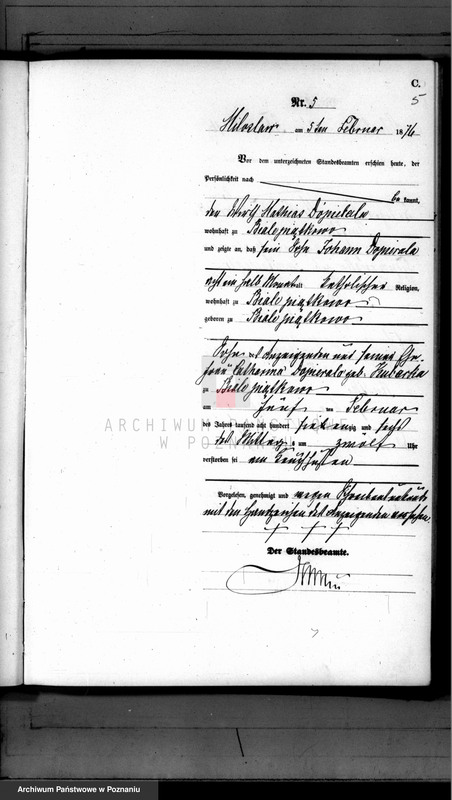 C.
5
Nr. 5
Miloslaw am 5ten Februar 1876
Vor dem unterzeichneten Standesbeamten erschien heute, der
Persönlichkeit nach
be kannt,
den Wirth Mathias Dopierala
wohnhaft zu Bialepiątkowo
und zeigte an, daß sein Sohn Johann Dopierala
ein halb Monat alt katholischer Religion,
wohnhaft zu Bialepiątkowo
geboren zu Bialepiątkowo
Sohn des Anzeigenden und seiner Ehe-
frau Catharina Dopierala geb.
zu Bialepiątkowo
am fünf ten Februar
des Jahres tausend acht hundert siebenzig und sechs
des Mittags um zwölf Uhr
verstorben sei am Keuchhusten
Vorgelesen, genehmigt und wegen Schreibensunkunde
mit den Handzeichen des Anzeigenden versehen.
+ + +
Der Standesbeamte.
ARCHIWUM PAŃSTWOWE
W POZNANIU
Archiwum Państwowe w Poznaniu